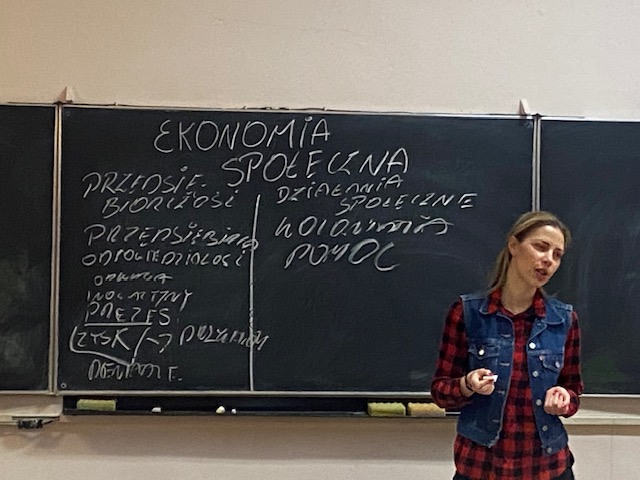 EKONOMIA
SPOŁECZNA
PRZEDSIĘ-
BIORCZOŚĆ
PRZEDSIĘBIORCA
ODPOWIEDZIALOŚĆ
ODWAGA
PREZES
ZYSK →
DZIAŁANIA
SPOŁECZNE
POMOC